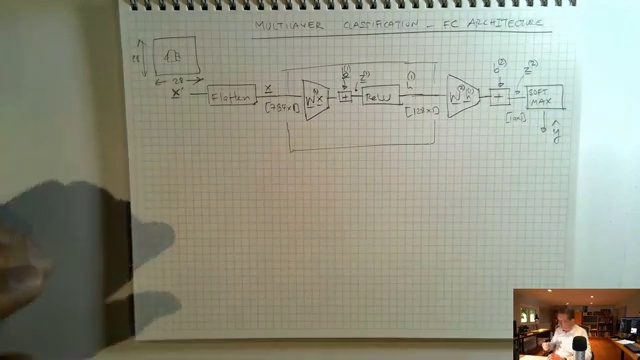 MULTILAYER CLASSIFICATION - FC ARCHITECTURE
28
28
X' Flatten x [784x1] W⁽¹⁾x + b⁽¹⁾ z⁽¹⁾ ReLU h⁽¹⁾ [128x1] W⁽²⁾h⁽¹⁾ + b⁽²⁾ z⁽²⁾ [10x1] SOFT
MAX
ŷ